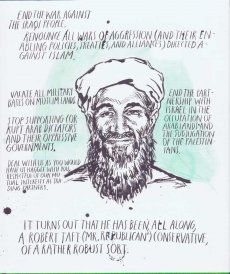 END THE WAR AGAINST
THE IRAQI PEOPLE.
RENOUNCE ALL WARS OF AGGRESSION (AND THEIR EN-
ABLING POLICIES, TREATIES, AND ALLIANCES) DIRECTED A-
GAINST ISLAM.
VACATE ALL MILITARY
BASES ON MUSLIM LANDS.
STOP SUPPORTING COR-
RUPT ARAB DICTATORS
AND THEIR OPPRESSIVE
GOVERNMENTS.
DEAL WITH US AS YOU WOULD
RESPECTED
END THE PART-
NERSHIP WITH
ISRAEL IN THE
OCCUPATION OF
ARAB LAND AND THE
SUBJUGATION OF THE PALESTIN-
IANS.
IT TURNS OUT THAT HE HAS BEEN, ALL ALONG,
A ROBERT TAFT ("MR. REPUBLICAN") CONSERVATIVE,
OF A RATHER ROBUST SORT.